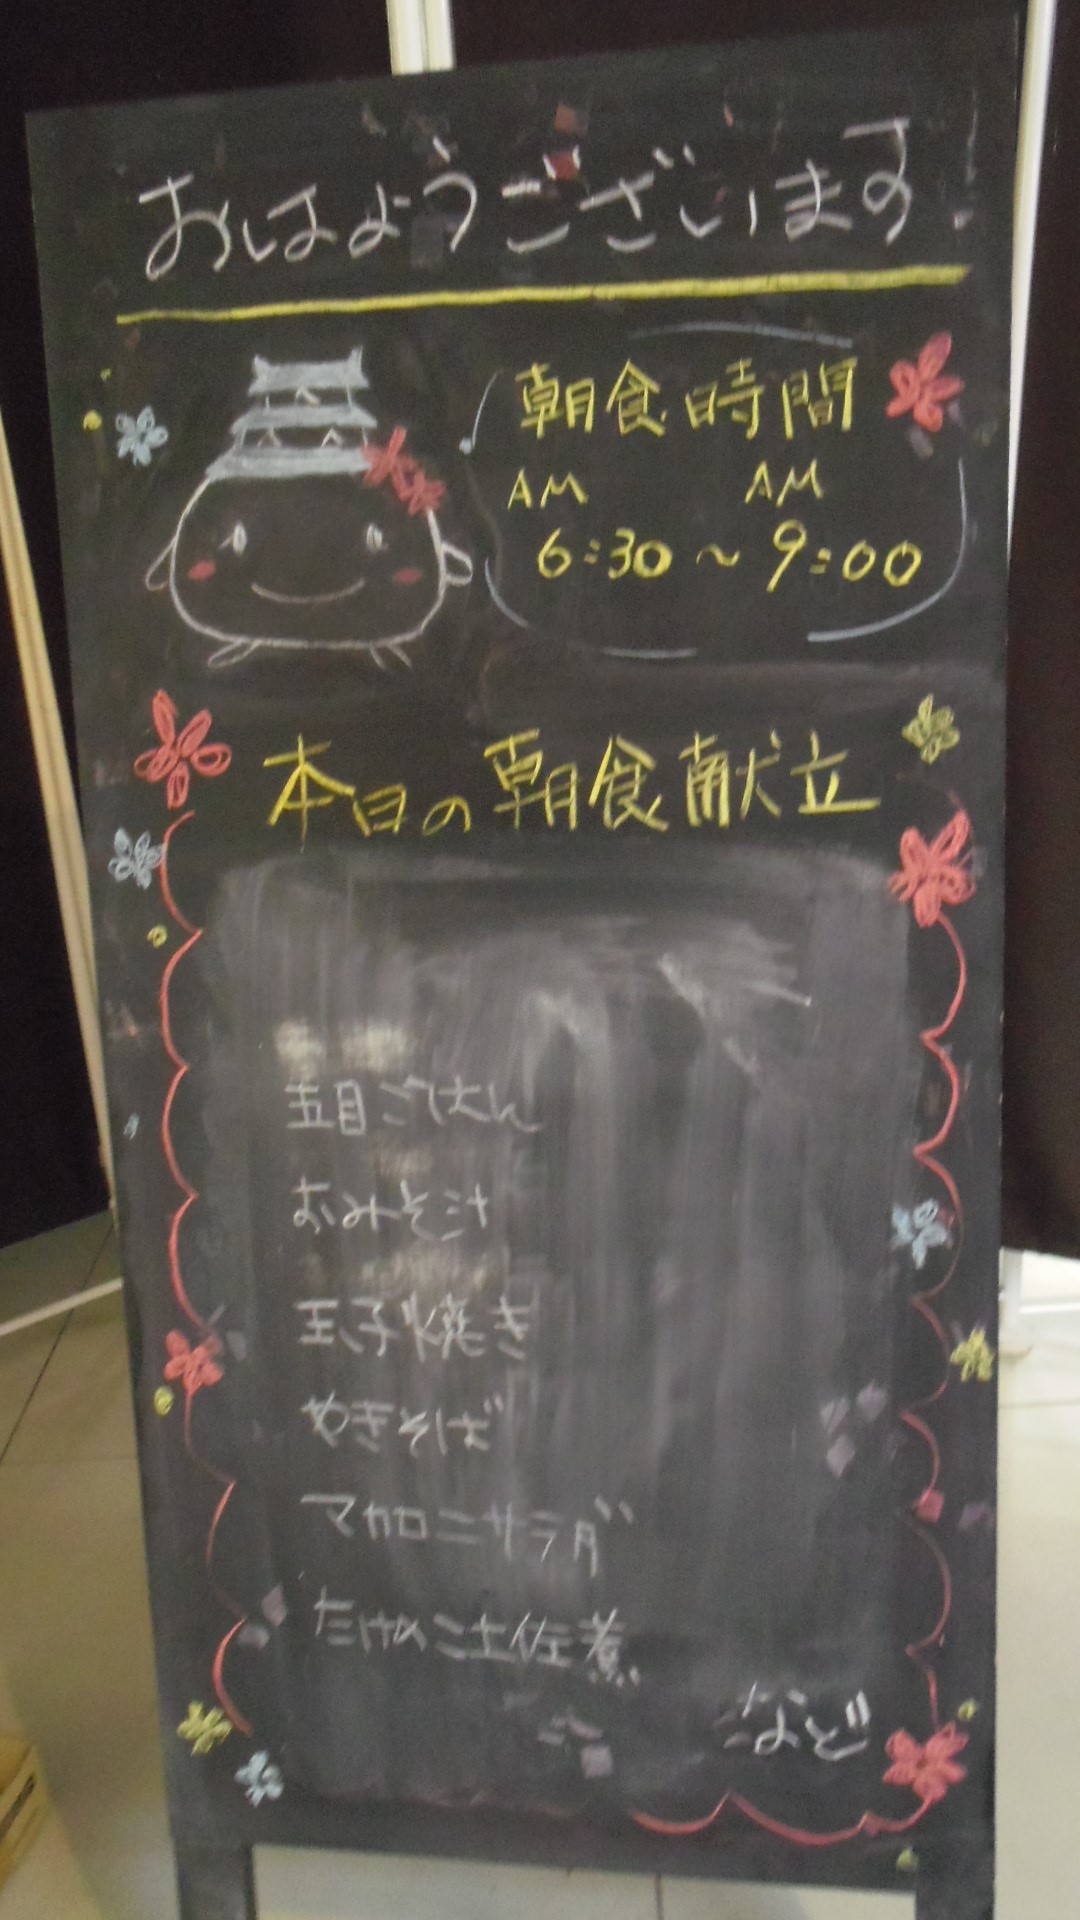 おはようございます
朝食時間
AM AM
6:30～9:00
本日の朝食献立
五目ごはん
おみそ汁
玉子焼き
やきそば
マカロニサラダ
たけのこ土佐煮
など